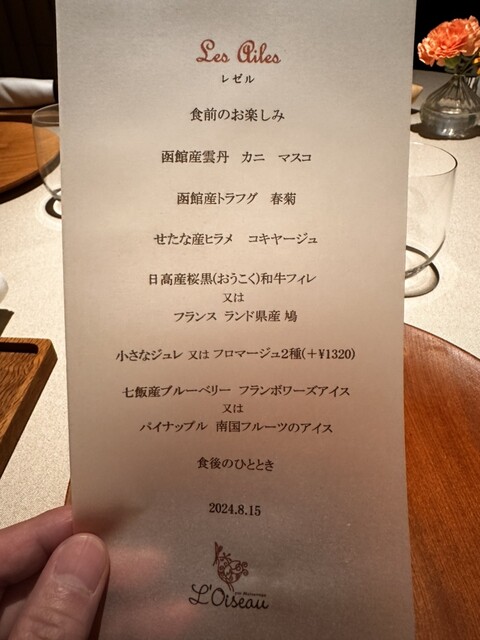 Les Ailes
レゼル
食前のお楽しみ
函館産雲丹 カニ マスコ
函館産トラフグ 春菊
せたな産ヒラメ コキヤージュ
日高産桜黒(おうこく)和牛フィレ
又は
フランス ランド県産 鳩
小さなジュレ 又は フロマージュ2種(+¥1320)
七飯産ブルーベリー フランボワーズアイス
又は
パイナップル 南国フルーツのアイス
食後のひととき
2024.8.15
L'Oiseau